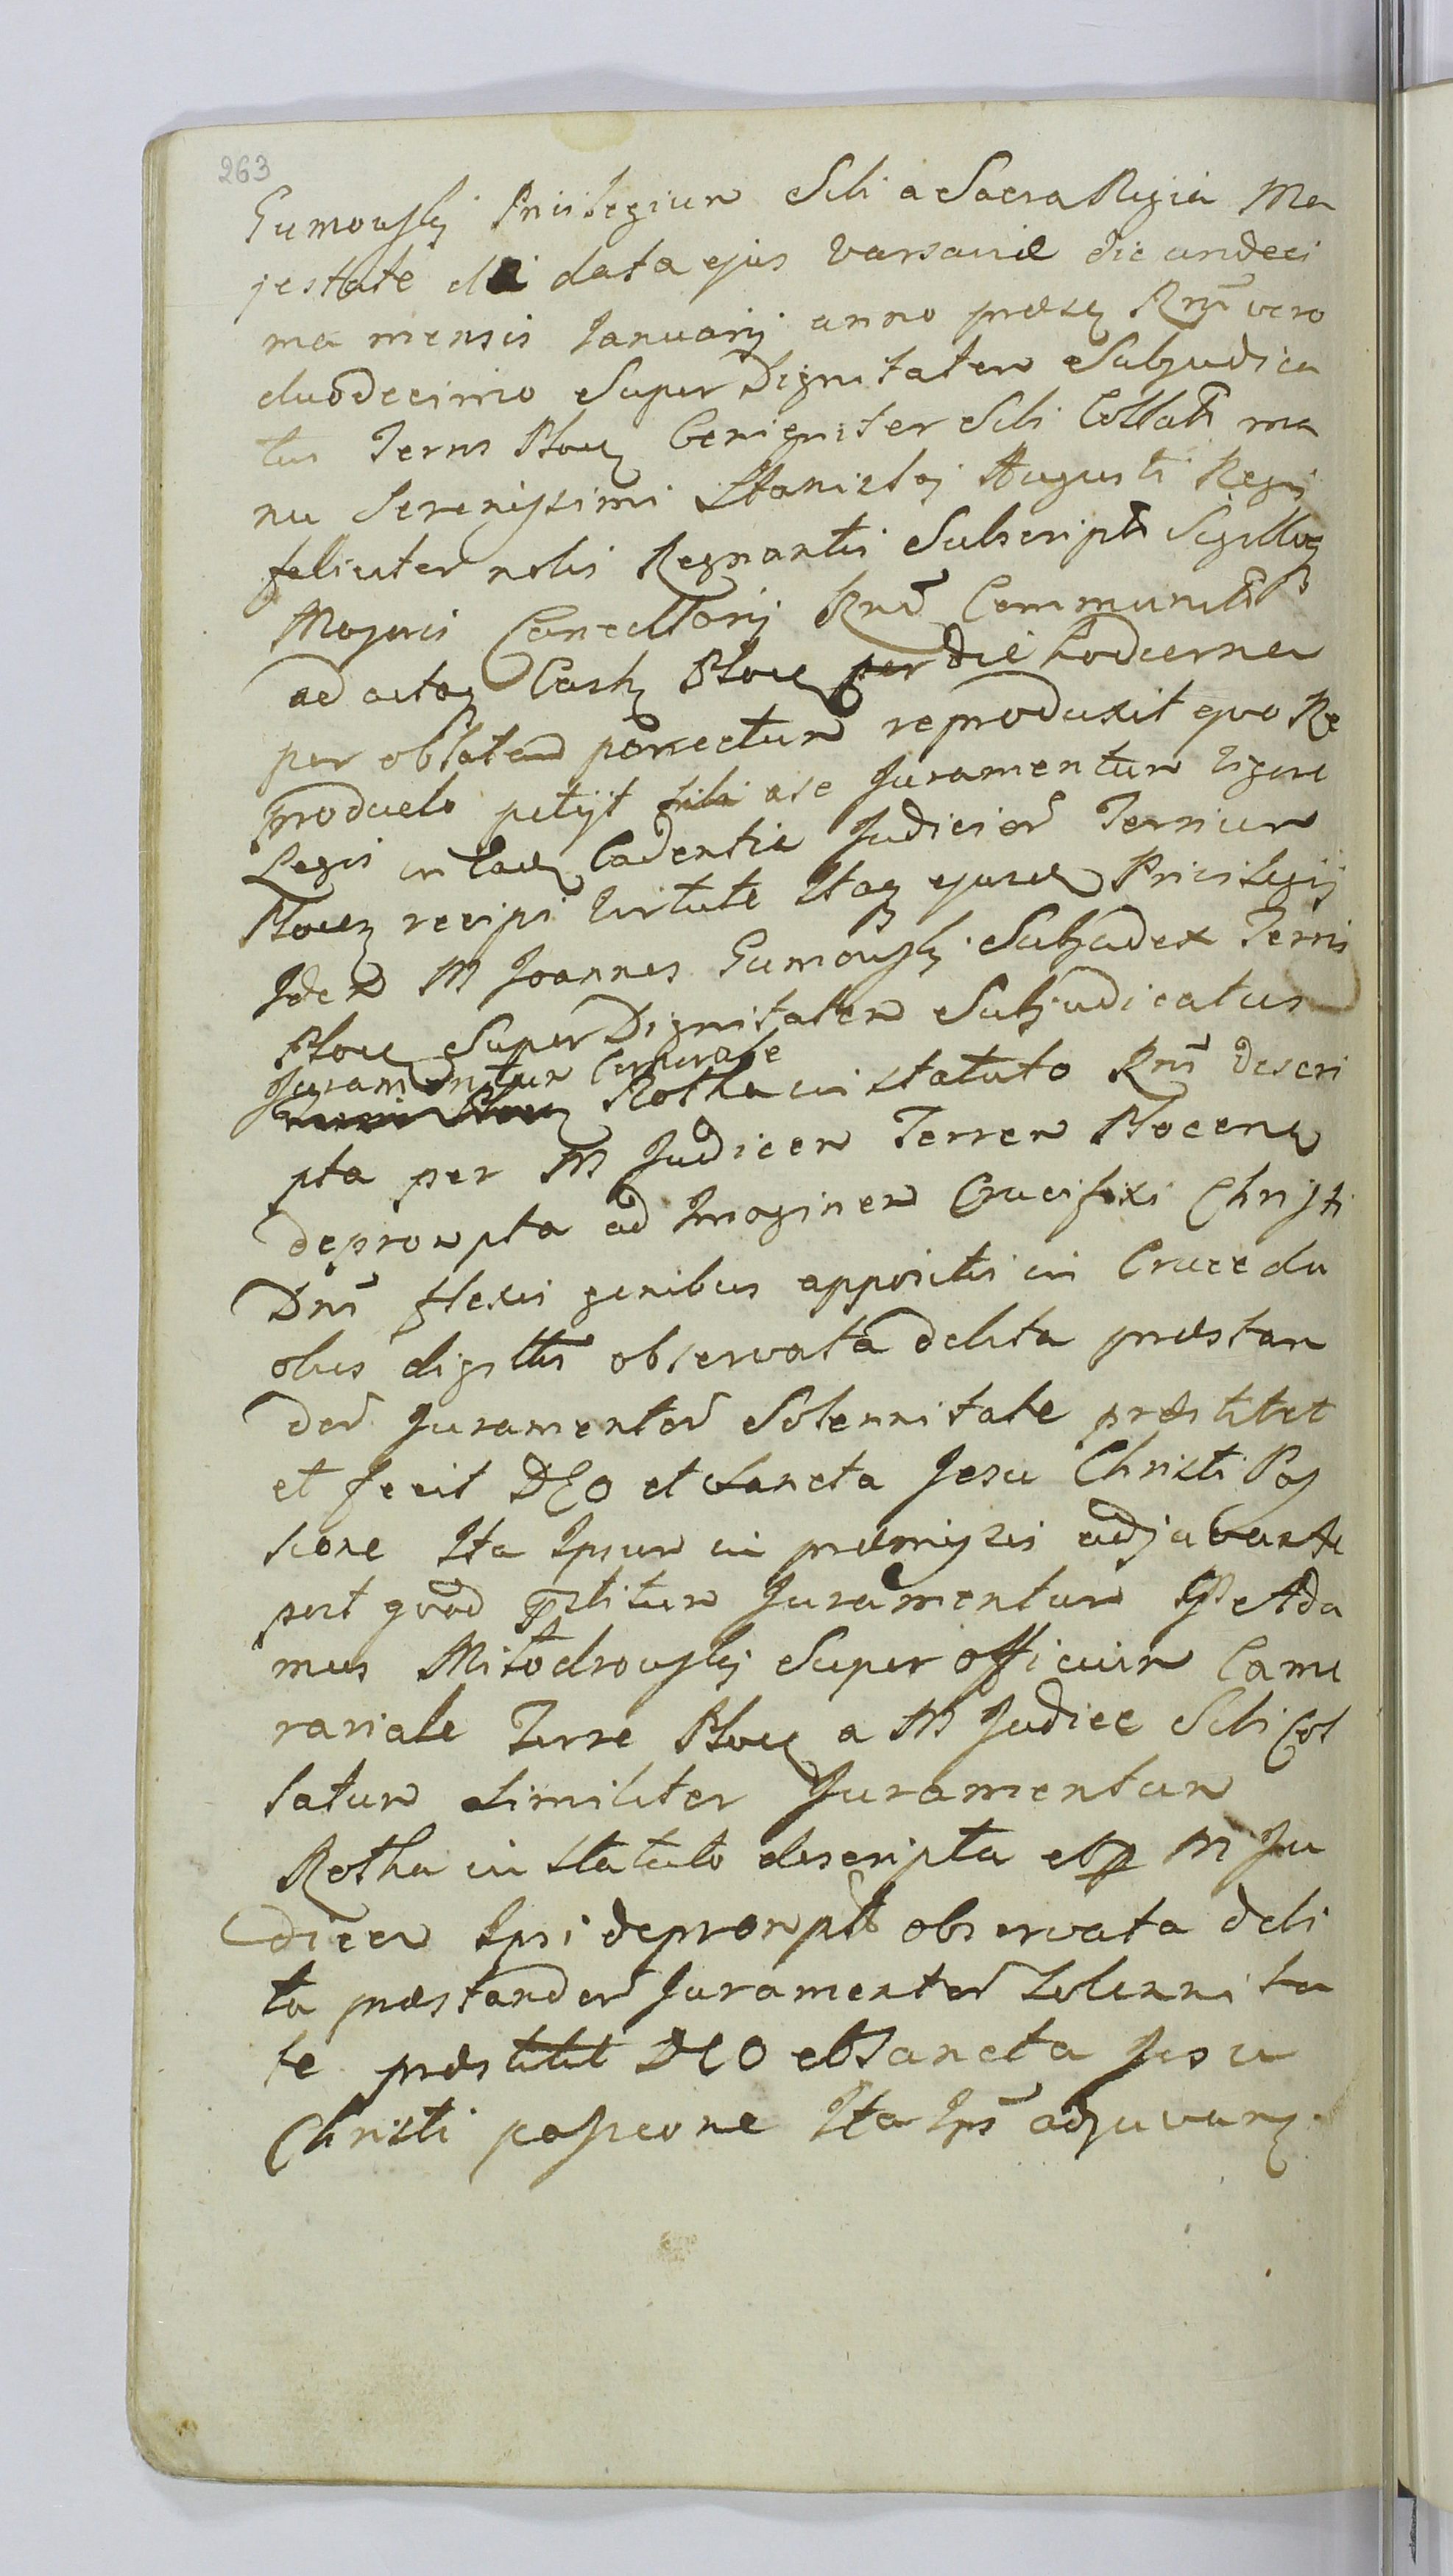 263
Gumowskj Privilegium Sibi a Sacra Regia Ma
jestate de data ejus Varsaviæ die undeci
ma mensis Januarij anno præsq Rnī vero
duodecimo Super Dignitatem Subjudica
tus Terris Ploceq benigniter Sibi Collatū ma
nu Serenissimi Stanislaj Augusti Regis
feliciter nobis Regnantis Subscriptū Sigilloq
Majoris Cancellarij Rnđ Communitū
ad actaq Castq Ploceq per die hodierna
per oblatam porrectum reproduxit quo Re
producto petijt sibi a se Juramentum vigore
Legis in Caueq Cadentia Judiciōr Terrium
Plocenq recipi Virtute Itaq ejusdq Privilegij
Idem M Joannes Gumowskj Subjudex Terris
Ploceq Super Dignitatem Subjudicatus
Juramentum Corporale
Rotha in statuto Rnī descri
pta per M Judicem Terren Plocenq
deprompta ad Imaginem Crucifixi Christi
Dnī flexis genibus appositis in Cruce du
obus digitis observata debita præstan
dor Juramentor Solennitate præstitit
et fecit DEO et Sancta Jesu Christi Pas
sione Ita Ipsum in præmissis adjuvante
post quod pstitum Juramentum G Ada
mus Mitodrowskj Super officium Came
rariale Terræ Ploceq a M Judice Sibi Col
latum similiter Juramentum
Rotha in statuto descripta et p M Ju
dicem Ipsi depromptā observata debi
ta præstandor Juramentor Solennita
te præstitit DEO et Sancta Jesu
Christi passione Ita Ipš adjuvanq.